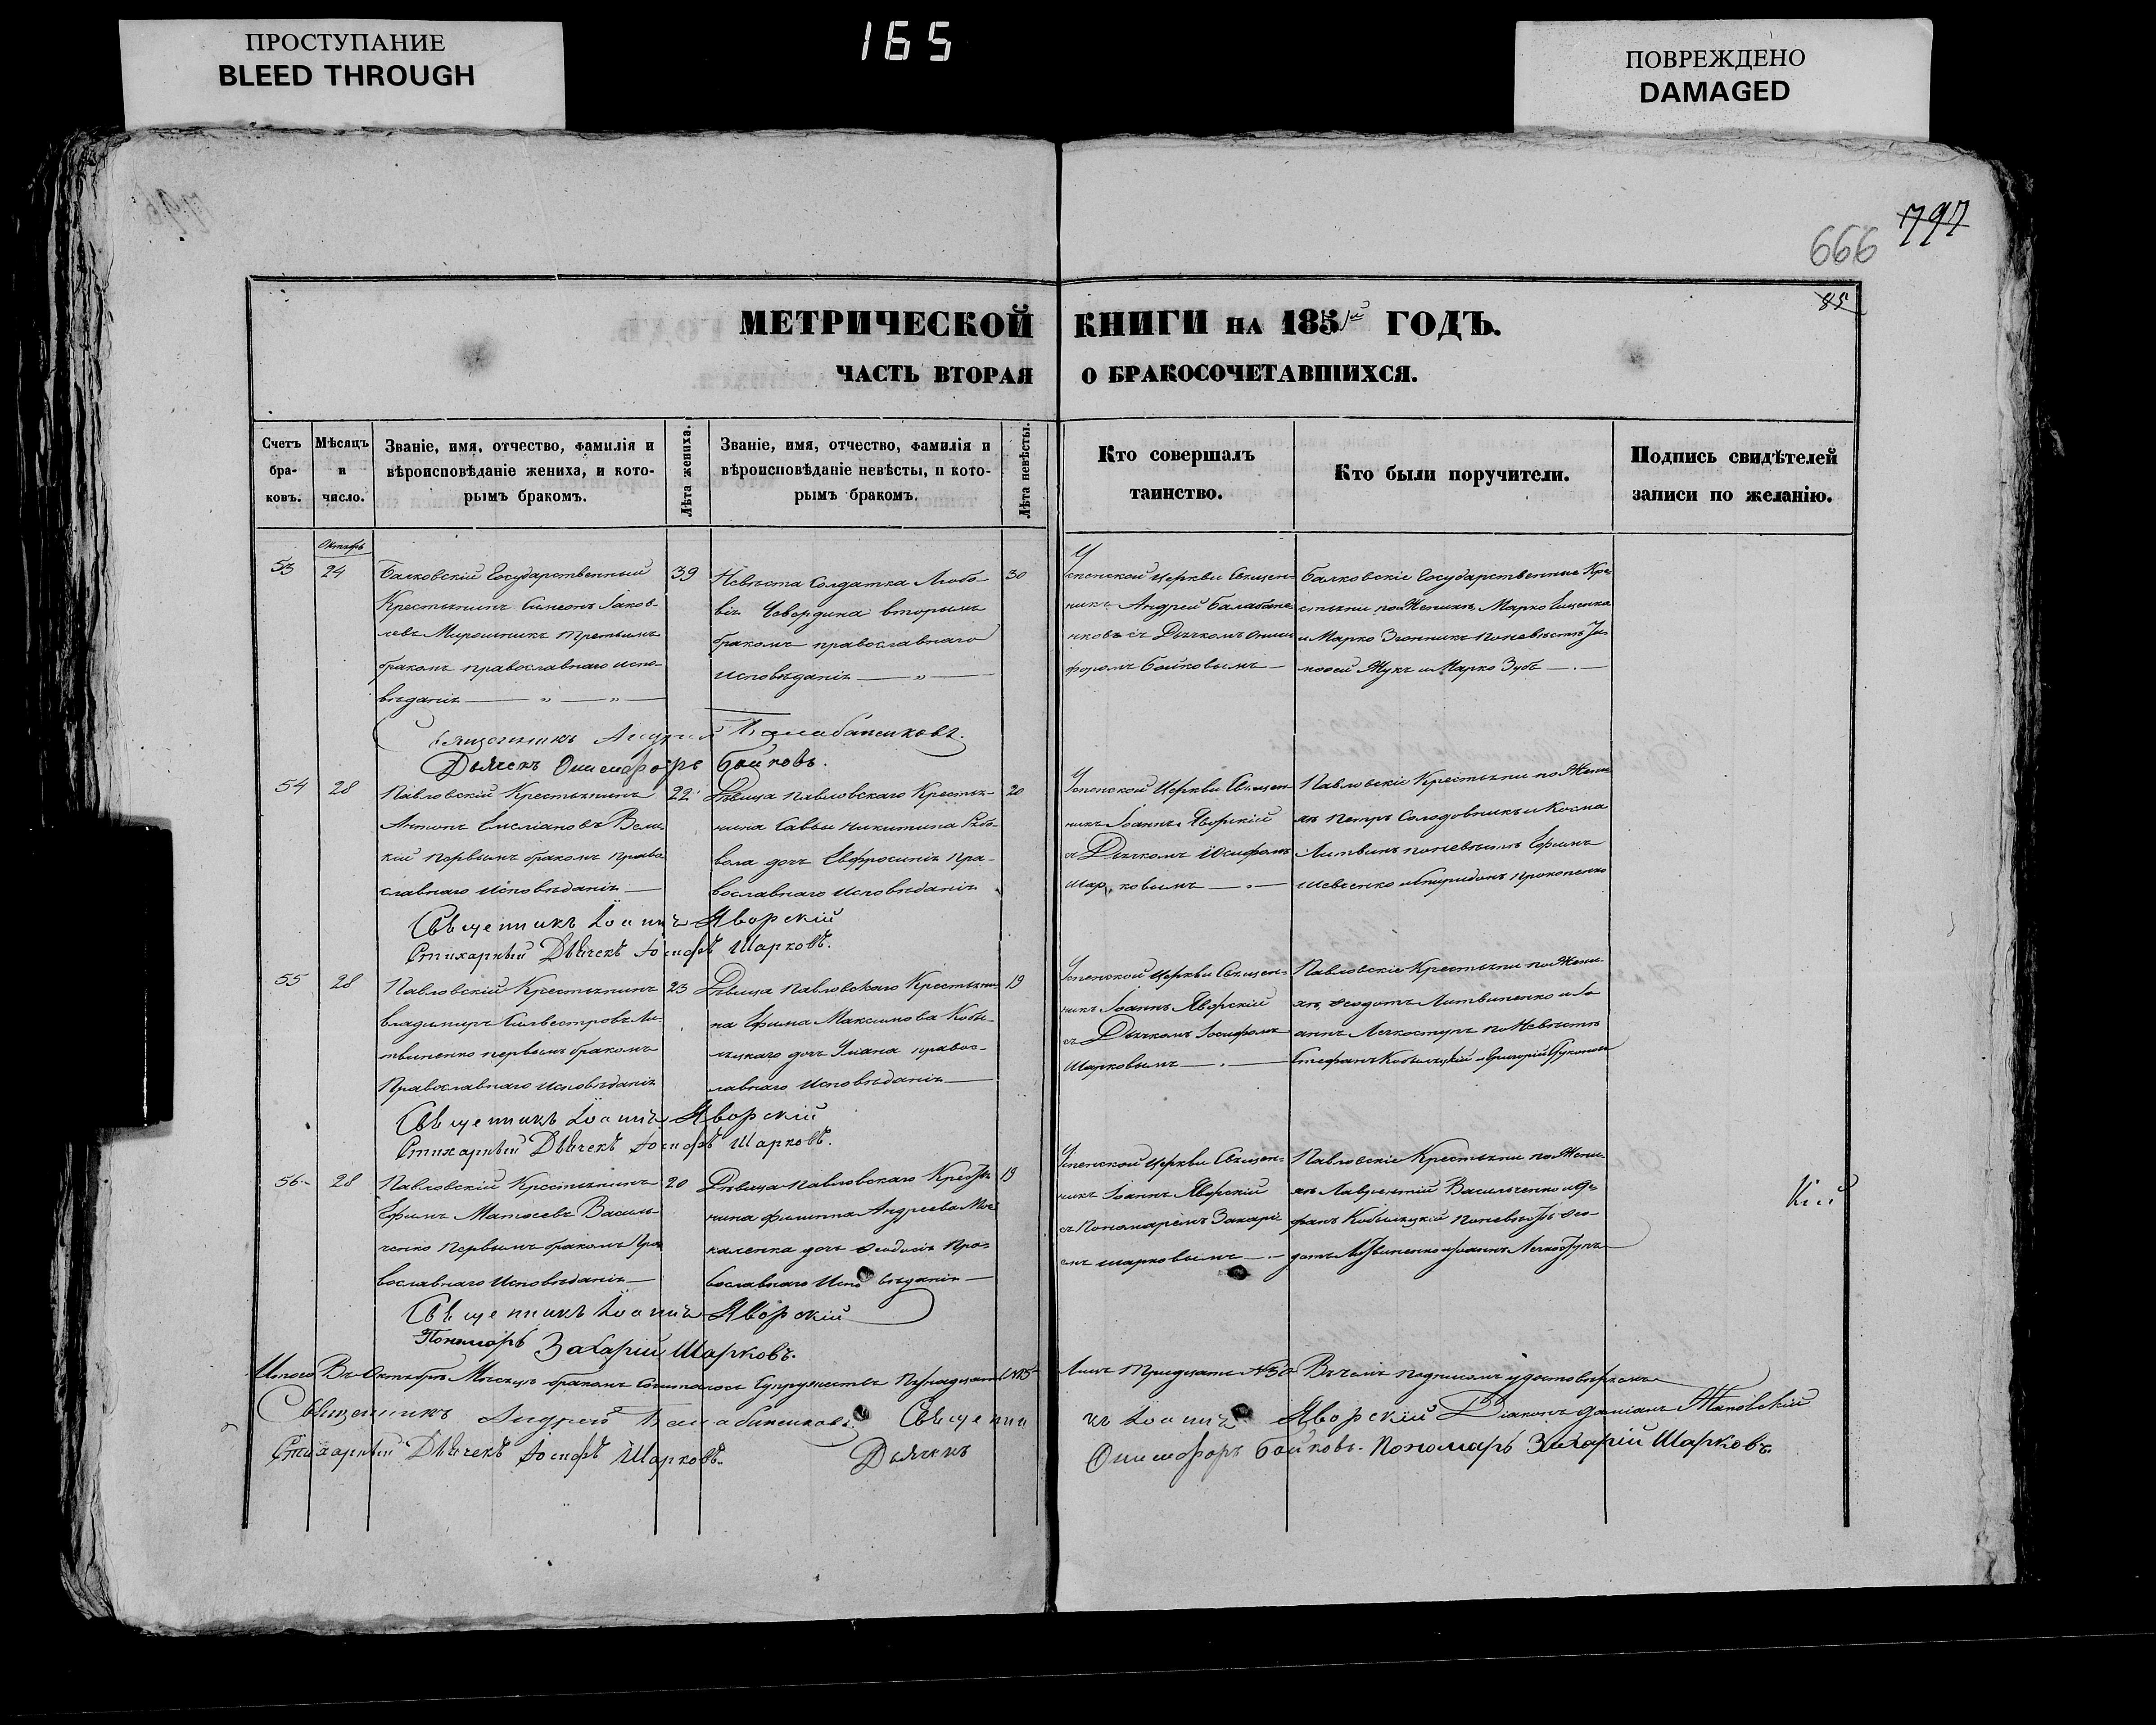 ПРОСТУПАНИЕ
BLEED THROUGH
165
ПОВРЕЖДЕНО
DAMAGED
797
666
85
МЕТРИЧЕСКОЙ КНИГИ НА 185 ГОДЪ.
ЧАСТЬ ВТОРАЯ О БРАКОСОЧЕТАВШИХСЯ.
Счетъ
бра-
ковъ.
Мѣсяцъ
и
число.
Званіе, имя, отчество, фамилія и
вѣроисповѣданіе жениха, и кото-
рымъ бракомъ.
Лѣта жениха.
Званіе, имя, отчество, фамилія и
вѣроисповѣданіе невѣсты, и кото-
рымъ бракомъ.
Лѣта невѣсты.
Кто совершалъ
таинство.
Кто были поручители.
Подпись свидѣтелей
записи по желанію.
Октябрь
53
24
Балковскій Государственный
Крестьянинъ Симеонъ Іаков-
левъ Мирошникъ третьимъ
бракомъ православнаго испо-
вѣданія
39
Невѣста Солдатка Любо-
вторымъ
бракомъ православнаго
исповѣданія
30
Успенской Церкви Священ-
никъ Андрей Балабане-
нковъ съ Дьячкомъ Ониси-
форомъ Байковымъ
Балковскіе Государственные Кре-
стьяне по Женихѣ, Марко
и Марко по невѣстѣ
Жукъ и Марко Зубъ
Священникъ Андрей Балабаненковъ.
Дьячекъ Онисифоръ Байковъ.
54
28
Павловскій Крестьянинъ
Антонъ Вели-
кій первымъ бракомъ право-
славнаго исповѣданія
22
Дѣвица Павловскаго Крестья-
нина Саввы Никитина
дочь Евфросинія пра-
вославнаго исповѣданія
20
Успенской Церкви Священ-
никъ Іоаннъ Яворскій
съ Дьячкомъ Іосифомъ
Шарковымъ
Павловскіе Крестьяне по Жени-
хѣ Петръ Солодовникъ и Косма
Литвинъ по невѣстѣ Ефимъ
Шевченко и Спиридонъ Прокопенко
Священникъ Іоаннъ Яворскій
Стихарный Дьячекъ Іосифъ Шарковъ.
55
28
Павловскій Крестьянинъ
Владимиръ Силвестровъ Ли-
твиненко первымъ бракомъ
Православнаго исповѣданія
23
Дѣвица Павловскаго Крестьяни-
на Ефима Максимова Кобы-
лецкаго дочь Уліана правос-
лавнаго исповѣданія
19
Успенской Церкви Священ-
никъ Іоаннъ Яворскій
съ Дьячкомъ Іосифомъ
Шарковымъ
Павловскіе Крестьяне по Жени-
хѣ, Ѳеодотъ Литвиненко и Іо-
аннъ Легкоступъ по Невѣстѣ
Стефанъ Кобылецкій и Григорій
Священникъ Іоаннъ Яворскій
Стихарный Дьячекъ Іосифъ Шарковъ.
56
28
Павловскій Крестьянинъ
Ефимъ Матвеевъ Василь-
ченко первымъ бракомъ Пра-
вославнаго исповѣданія
20
Дѣвица Павловскаго Крестья-
нина Филиппа Андреева Мос-
каленка дочь Ѳеодосія Пра-
вославнаго исповѣданія
19
Успенской Церкви Священ-
никъ Іоаннъ Яворскій
съ Пономаремъ Захарі-
емъ Шарковымъ
Павловскіе Крестьяне по Жени-
хѣ Лаврентій Васильченко и Сте-
фанъ Кобылецкій по невѣстѣ Ѳео-
дотъ Литвиненко и Іоаннъ Легкоступъ
кій
Священникъ Іоаннъ Яворскій
Пономарь Захарій Шарковъ.
Итого Въ Октябрѣ Мѣсяцѣ бракомъ сочеталось Супружествъ Пятнадцать №15 Лицъ Тридцать №30 Въ чемъ подписомъ удостовѣряемъ
Священникъ Андрей Балабаненковъ Священникъ Іоаннъ Яворскій Діаконъ Даміанъ
Стихарный Дьячекъ Іосифъ Шарковъ. Дьячекъ Онисифоръ Байковъ. Пономарь Захарій Шарковъ.